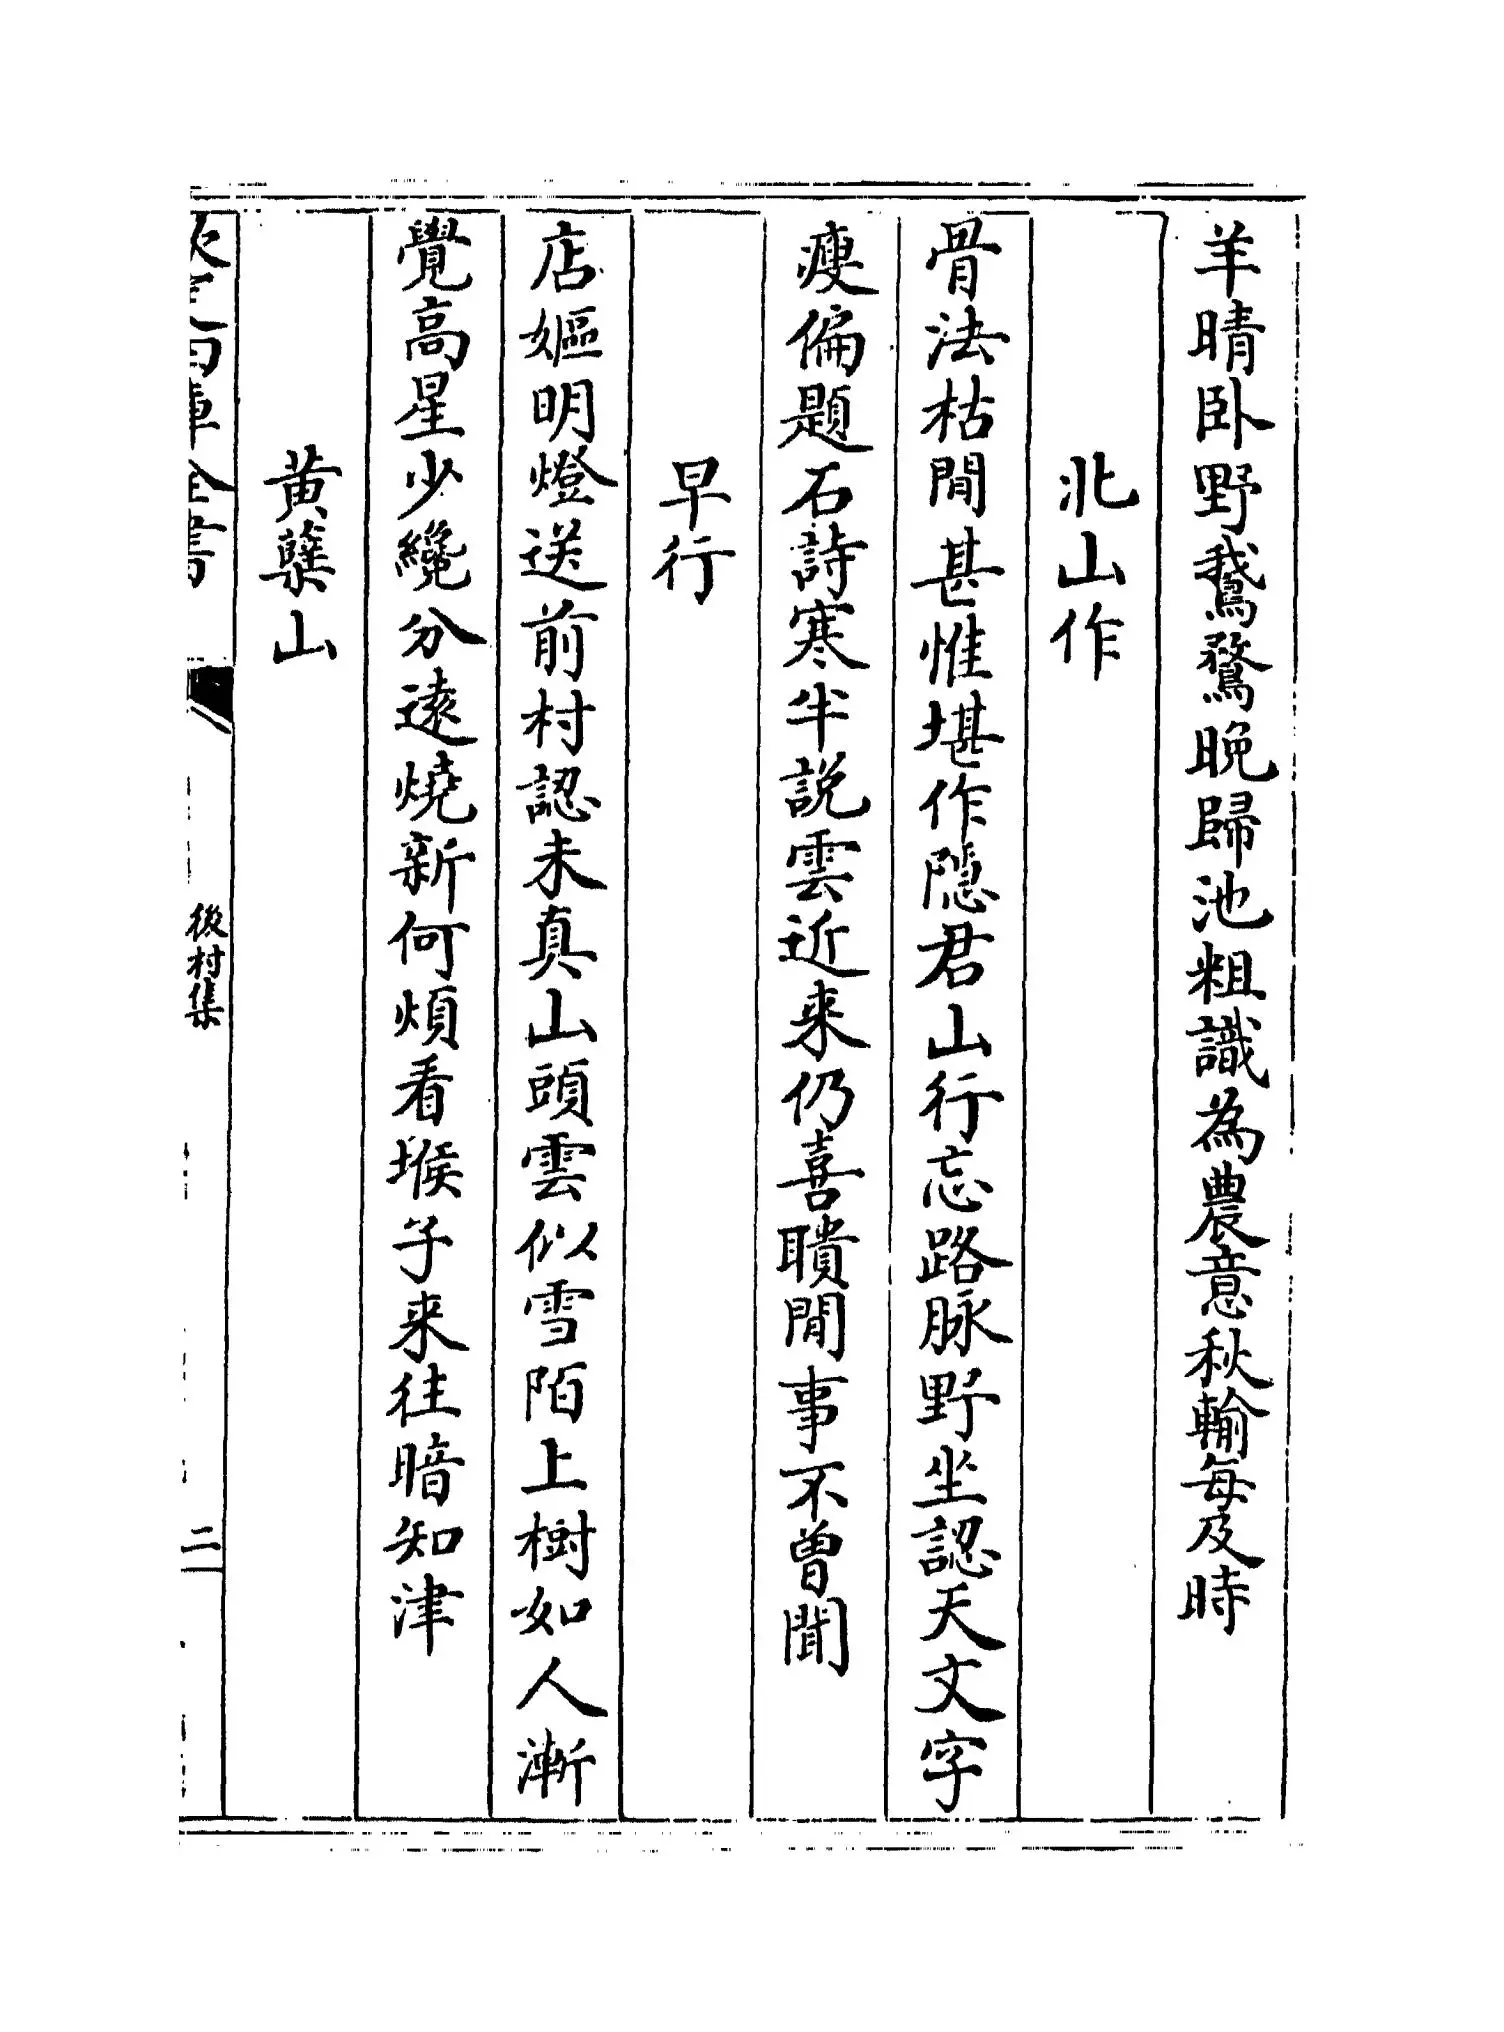 羊晴卧野鵞鶩晚歸池粗識為農意秋輸每及時
北山作
骨法枯閒甚惟堪作隠君山行忘路脉野坐認天文字
瘦偏題石詩寒半説雲近来仍喜聵閒事不曾聞
早行
店嫗明燈送前村認未真山頭雲似雪陌上樹如人漸
覺高星少纔分逺燒新何煩看堠子来往暗知津
黄蘖山
欽定四庫全書
後村集
二